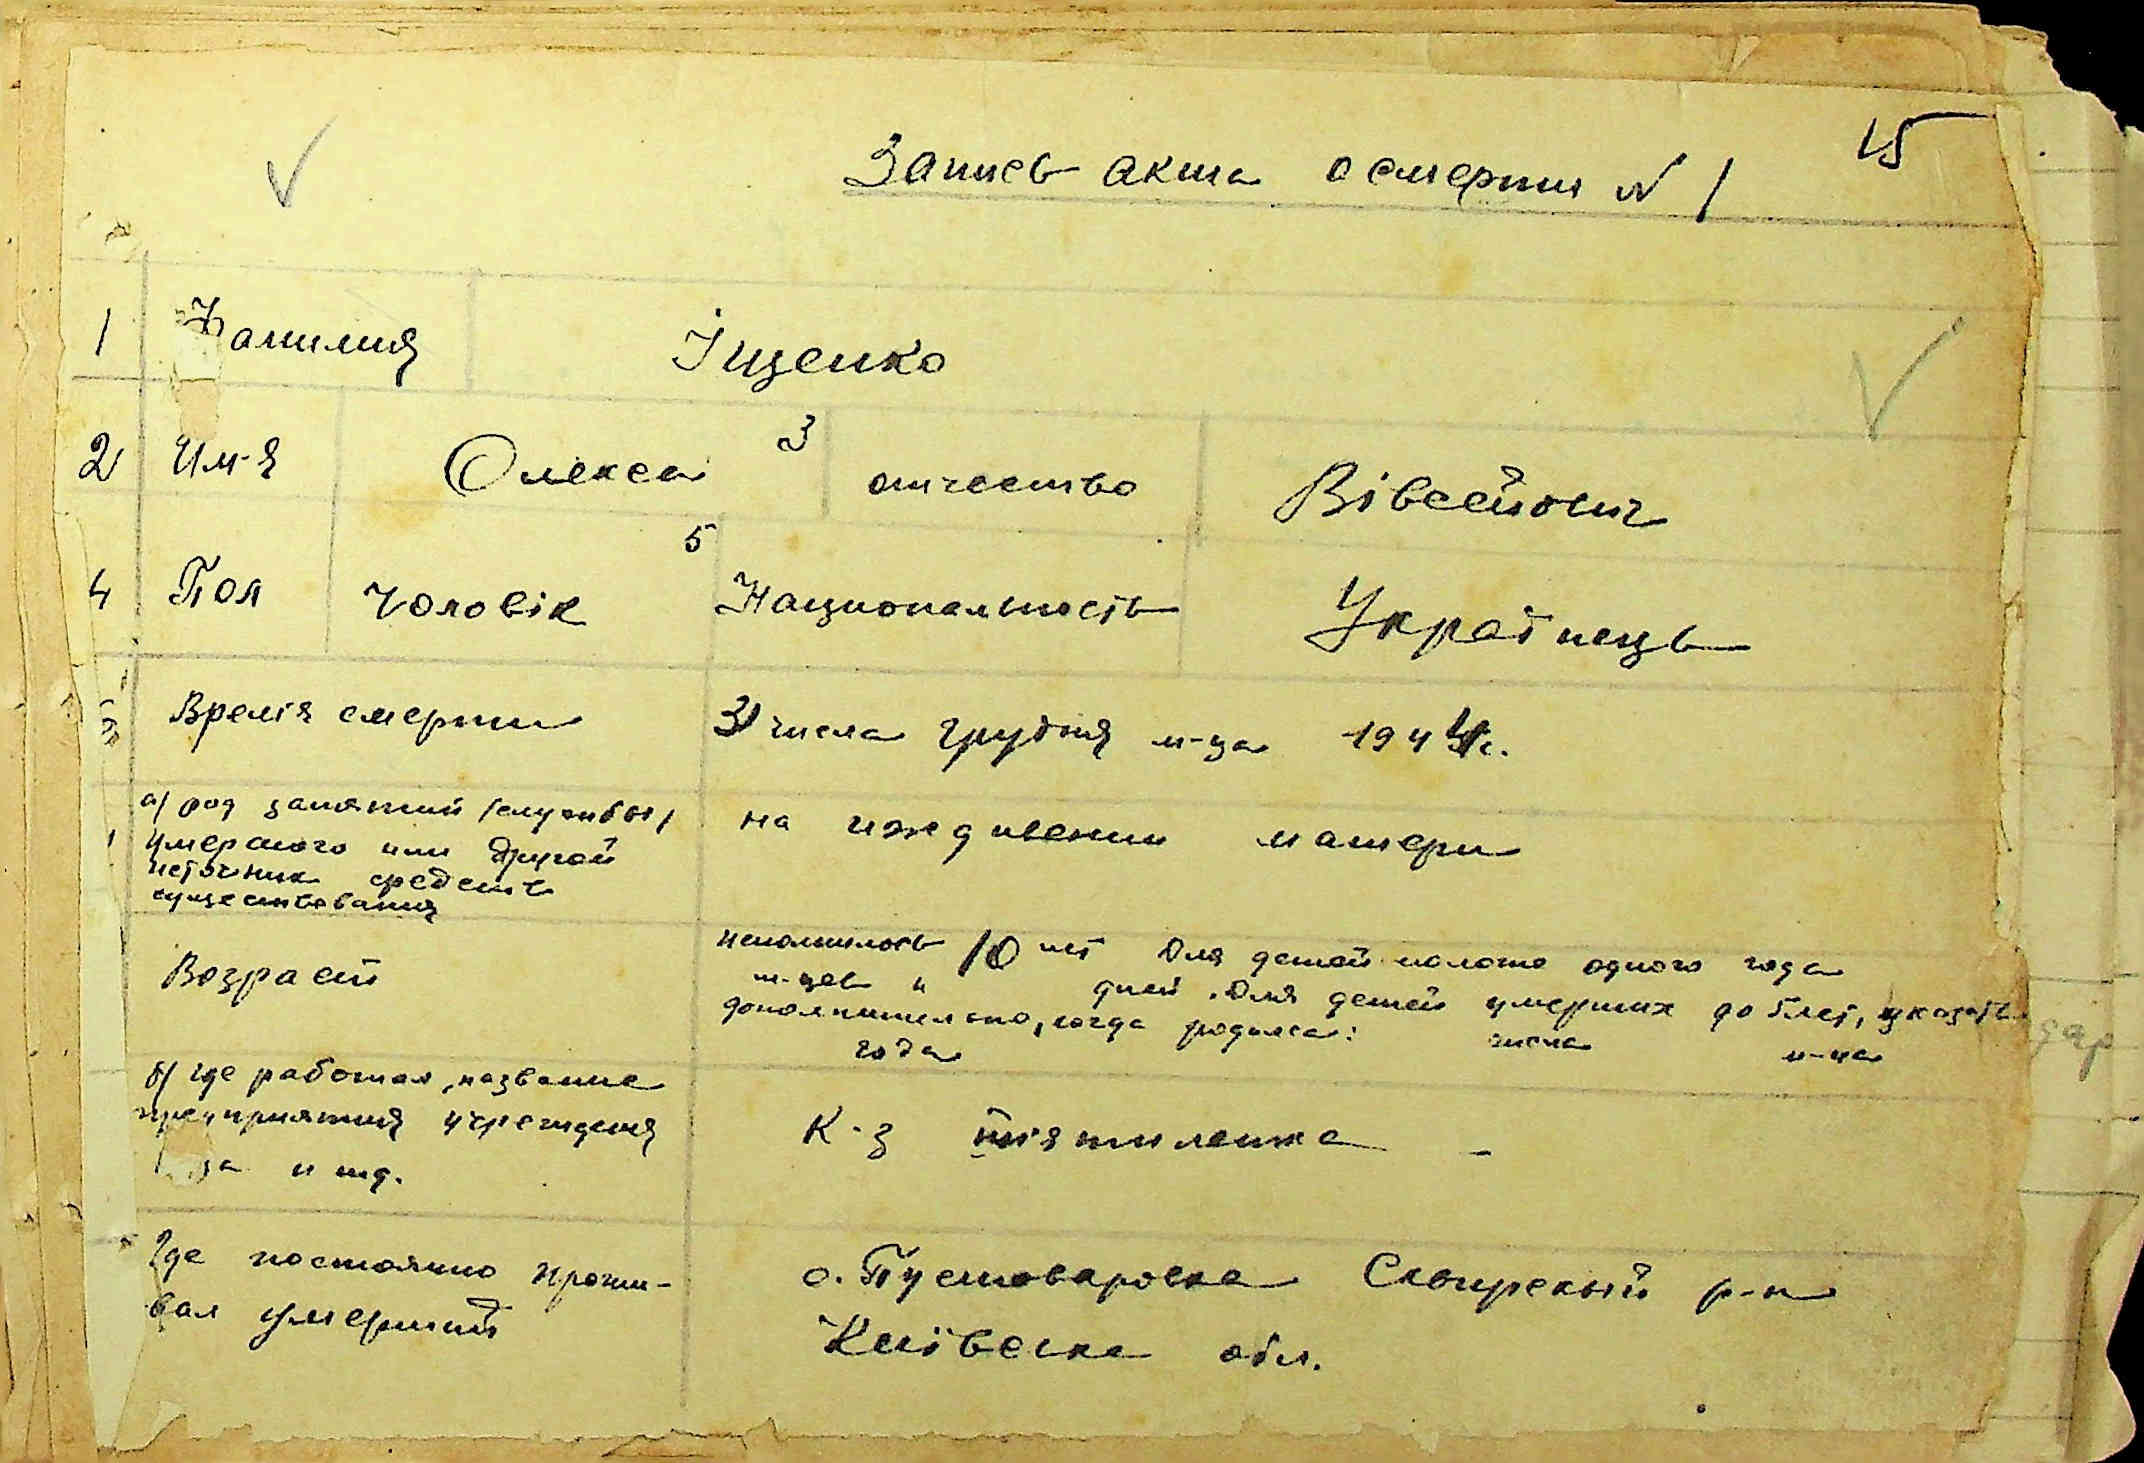 15
Запись акта о смерти № 1
1 Фамилия Іщенко
2 Им-я Олекса 3 отчество Вівсейович
4 Пол Чоловік 5 Национальность Українець
Время смерти 31 числа грудня м-ца 194 г.
а/ род занятий /службы/ на иждивении матери
умершого или другой
источник средств
существования
Возраст исполнилось 10 лет Для детей моложе одного года
м-цев и дней. Для детей умерших до 5 лет, указать
дополнительно, когда родился: числа м-ца
года
б/ где работал, название
предприятия учреждения К-з пятилетке
и тд.
Где постоянно прожи- с. Пустоваровка Сквирский р-н
вал умерший Київска обл.